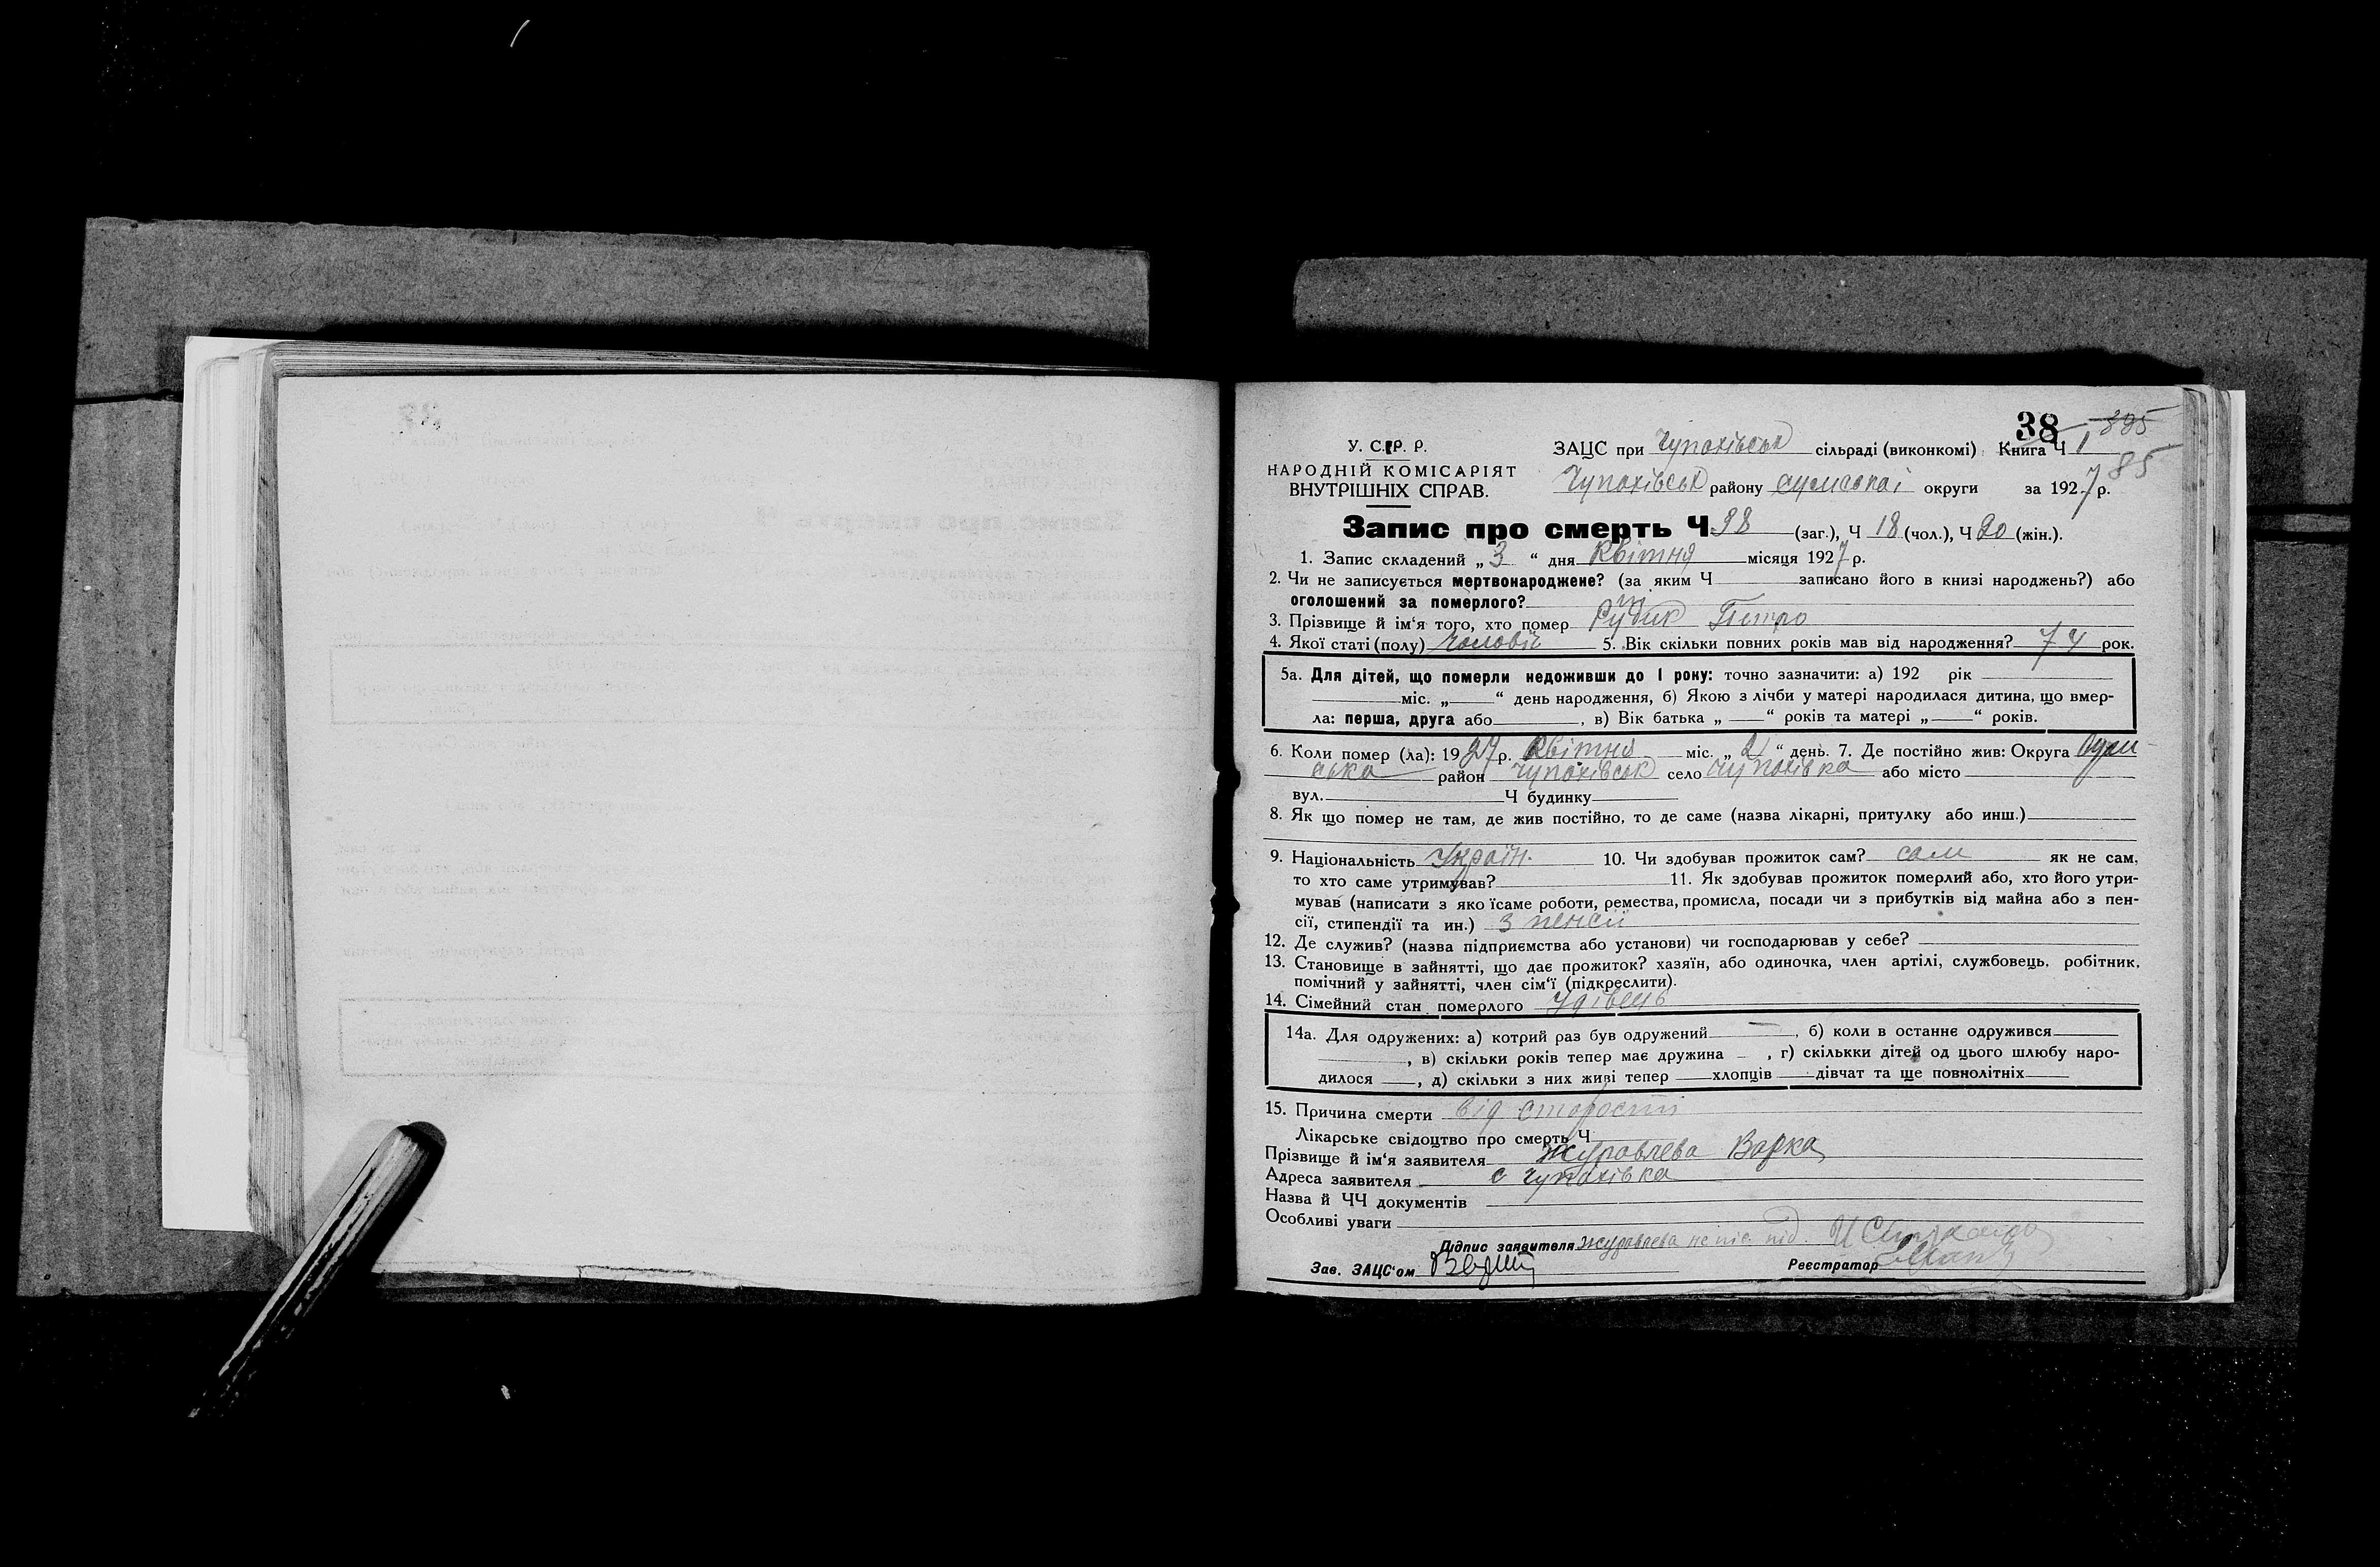 38 385
У. С. Р. Р. ЗАЦС при Чупахівськ сільраді (виконкомі) Книга Ч 1
НАРОДНІЙ КОМІСАРІЯТ
ВНУТРІШНІХ СПРАВ.
85
Чупахівськ району Сумської округи за 1927 р.
Запис про смерть Ч 38 (заг.), Ч 18 (чол.), Ч 20 (жін.).
1. Запис складений „ 3 “ дня Квітня місяця 1927 р.
2. Чи не записується мертвонароджене? (за яким Ч записано його в книзі народжень?) або
оголошений за померлого?
3. Прізвище й ім'я того, хто помер Рудик Петро
4. Якої статі (полу) Чоловіч 5. Вік скільки повних років мав від народження? 74 рок.
5а. Для дітей, що померли недоживши до 1 року: точно зазначити: а) 192 рік
міс. „ “ день народження, б) Якою з лічби у матері народилася дитина, що вмер-
ла: перша, друга або , в) Вік батька „ “ років та матері „ “ років.
6. Коли помер (ла): 1927 р. Квітня міс. „ 2 “ день. 7. Де постійно жив: Округа Сум
ська район Чупахівськ село Чупахівка або місто
вул. Ч будинку
8. Як що помер не там, де жив постійно, то де саме (назва лікарні, притулку або инш.)
9. Національність Україн. 10. Чи здобував прожиток сам? сам як не сам,
то хто саме утримував? 11. Як здобував прожиток померлий або, хто його утри-
мував (написати з яко їсаме роботи, ремества, промисла, посади чи з прибутків від майна або з пен-
сії, стипендії та ин.) з пенсії
12. Де служив? (назва підприємства або установи) чи господарював у себе?
13. Становище в зайнятті, що дає прожиток? хазяїн, або одиночка, член артілі, службовець, робітник,
помічний у зайнятті, член сім'ї (підкреслити).
14. Сімейний стан померлого удівець
14а. Для одружених: а) котрий раз був одружений , б) коли в останнє одружився
, в) скільки років тепер має дружина , г) скількки дітей од цього шлюбу наро-
дилося , д) скільки з них живі тепер хлопців дівчат та ще повнолітніх
15. Причина смерти від старости
Лікарське свідоцтво про смерть Ч
Прізвище й ім'я заявителя Журавлева Варка
Адреса заявителя с Чупахівка
Назва й ЧЧ документів
Особливі уваги
Підпис заявителя Журавлева не пис. під.
Зав. ЗАЦС'ом Реєстратор